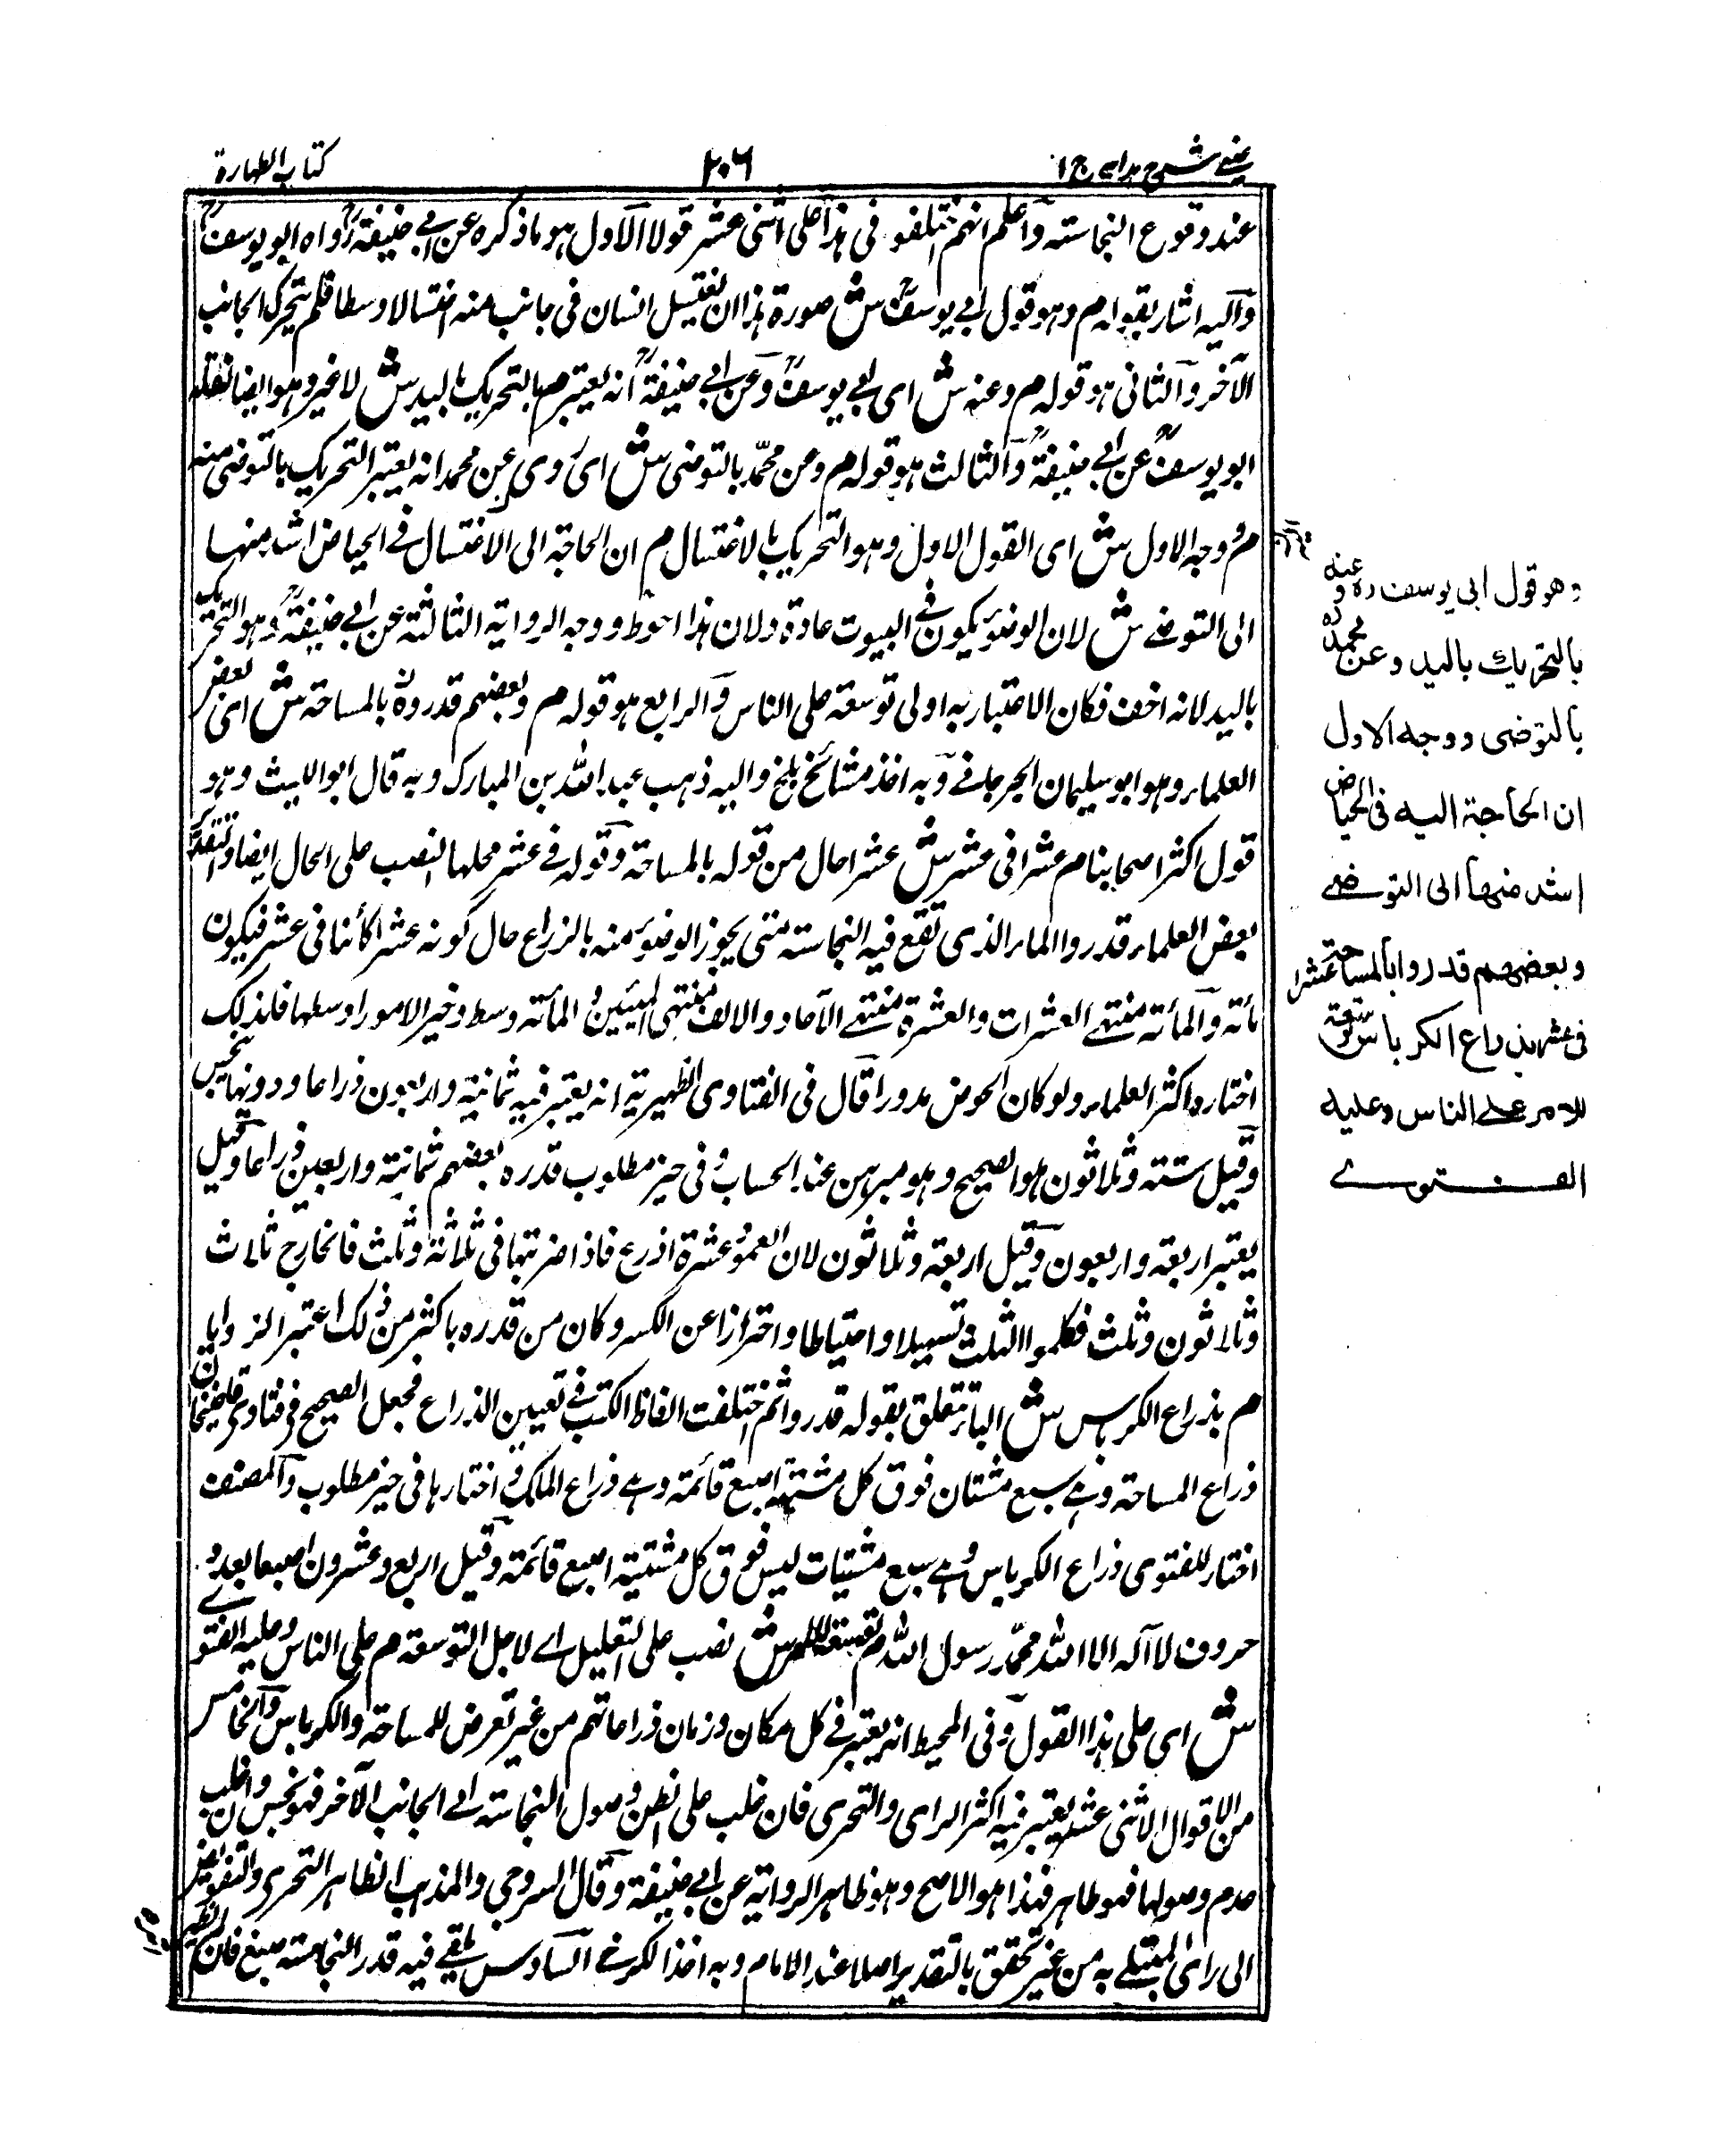 عینے شرح ہدایہ ج ١
٢٠٦
کتاب الطهارة
عند وقوع النجاسة واعلم انهم اختلفوا فی هذا علی اثنی عشر قولا الاول هو ما ذکره عن ابی حنیفة رواه ابو یوسف
والیه اشار بقوله م وهو قول ابی یوسف ش صورة هذا ان یغتسل انسان فی جانب منه اغتسالا وسطا فلم یتحرک الجانب
الآخر والثانی هو قوله م وعنه ش ای ابی یوسف وعن ابی حنیفة انه یعتبر م بالتحریک بالید ش لا غیر وهو ایضا نقله
ابو یوسف عن ابی حنیفة والثالث هو قوله م وعن محمد بالتوضی ش ای روی عن محمد انه یعتبر التحریک بالتوضی منه
م ووجه الاول ش ای القول الاول وهو التحریک بالاغتسال م ان الحاجة الی الاغتسال فی الحیاض اشد منها
الی التوضے ش لان الوضوء یکون فی البیوت عادة ولان هذا احوط ووجه الروایة الثالثة عن ابی حنیفة وهو التحریک
بالید لانه اخف فکان الاعتبار به اولی توسعة علی الناس والرابع هو قوله م وبعضهم قدروه بالمساحة ش ای بعض
العلماء وهو ابو سلیمان الجرجانے وبه اخذ مشائخ بلخ والیه ذهب عبد الله بن المبارک وبه قال ابو اللیث وهو
قول اکثر اصحابنا م عشرا فی عشر ش عشرا حال من قوله بالمساحة وقوله فے عشر محلها النصب علی الحال ایضا والتقدیر
بعض العلماء قدروا الماء الذی تقع فیه النجاسة متی یجوز الوضوء منه بالذراع حال کونه عشرا کائنا فی عشر فیکون
مائة والمائة منتهے العشرات والعشرة منتهے الآحاد والالف منتهی المئین والمائة وسط وخیر الامور اوسطها فلذلک
اختاره اکثر العلماء ولو کان الحوض مدورا قال فی الفتاوی الظهیریة انه یعتبر فیه ثمانیة واربعون ذراعا ودونها ینجس
وقیل ستة وثلاثون هو الصحیح وهو مبرهن عند الحساب وفی خیر مطلوب قدره بعضهم ثمانیة واربعین ذراعا وقیل
یعتبر اربعة واربعون وقیل اربعة وثلاثون لان العمود عشرة اذرع فاذا ضربتها فی ثلاثة وثلث فالخارج ثلاث
وثلاثون وثلث فکملوا الثلث تسهیلا واحتیاطا واحترازا عن الکسر وکان من قدره باکثر من ذلک اعتبر الزوایا
م بذراع الکرباس ش الباء تتعلق بقوله قدروا ثم اختلفت الفاظ الکتب فے تعیین الذراع فجعل الصحیح فی فتاوی قاضیخان
ذراع المساحة وهے سبع مشتات فوق کل مشتة اصبع قائمة وهے ذراع الملک واختارها فی خیر مطلوب والمصنف
اختار للفتوی ذراع الکرباس وهے سبع مشتیات لیس فوق کل مشتیة اصبع قائمة وقیل اربع وعشرون اصبعا بعدد
حروف لا اله الا الله محمد رسول الله م توسعة للامر ش نصب علی التعلیل اے لاجل التوسعة م علی الناس وعلیه الفتوے
ش ای علی هذا القول وفی المحیط انه یعتبر فے کل مکان وزمان ذراعاتهم من غیر تعرض للمساحة والکرباس والخامس
من الاقوال الاثنی عشر یعتبر فیه اکثر الرای والتحری فان غلب علی الظن وصول النجاسة الی الجانب الآخر فهو نجس وان غلب
عدم وصولها فهو طاهر فهذا هو الاصح وهو ظاهر الروایة عن ابی حنیفة وقال السروجی والمذهب الظاهر التحری والتفویض
الی رای المبتلے به من غیر تحقق بالتقدیر اصلا عند الامام وبه اخذ الکرخے السادس یلقے فیه قدر النجاسة صبغ فان
وهو قول ابی یوسف ره وعنه
بالتحریك بالید وعن محمد ره
بالتوضی ووجه الاول
ان الحاجة الیه فی الحیاض
اشد منها الی التوضے
وبعضهم قدروا بالمساحة عشرا
فی عشر بذراع الکرباس توسعة
للامر علے الناس وعلیه
الفتوے